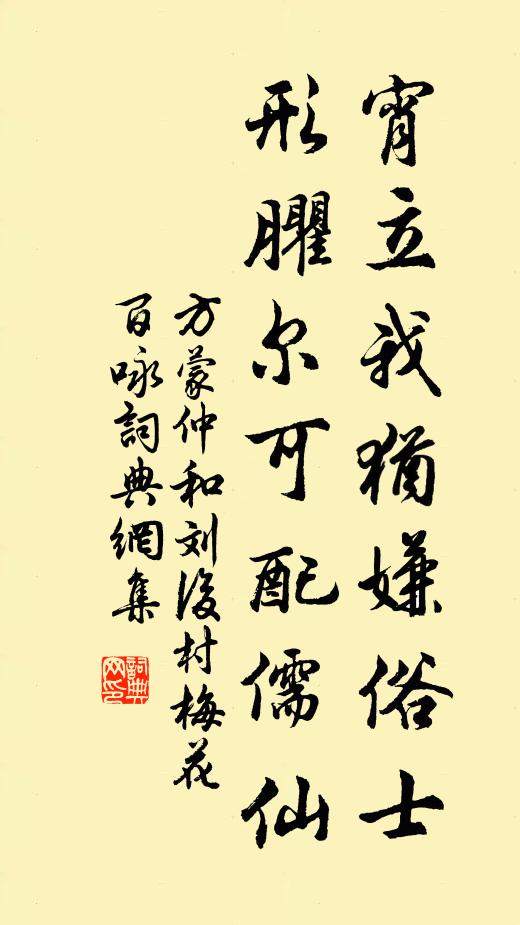 宵立我猶嫌俗士
形臞尔可配儒仙
方蒙仲和刘後村梅花
百咏詞典網集
詞典网印